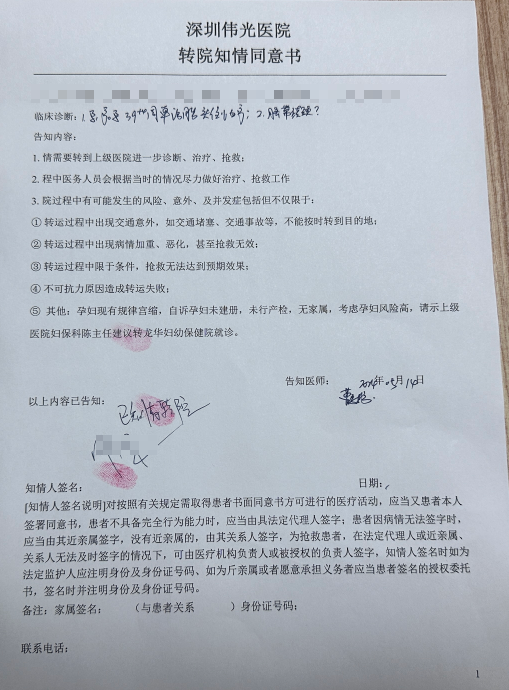 深圳伟光医院
转院知情同意书
临床诊断：1. 39 周 单活胎 ；2. ？
告知内容：
1. 情需要转到上级医院进一步诊断、治疗、抢救；
2. 程中医务人员会根据当时的情况尽力做好治疗、抢救工作
3. 院过程中有可能发生的风险、意外、及并发症包括但不仅限于：
① 转运过程中出现交通意外，如交通堵塞、交通事故等，不能按时转到目的地；
② 转运过程中出现病情加重、恶化，甚至抢救无效；
③ 转运过程中限于条件，抢救无法达到预期效果；
④ 不可抗力原因造成转运失败；
⑤ 其他：孕妇现有规律宫缩，自诉孕妇未建册，未行产检，无家属，考虑孕妇风险高，请示上级
医院妇保科陈主任建议转龙华妇幼保健院就诊。
告知医师： 年05月14日
以上内容已告知：
转院
知情人签名： 日期：
[知情人签名说明]对按照有关规定需取得患者书面同意方可进行的医疗活动，应当又患者本人
签署同意书，患者不具备完全行为能力时，应当由具法定代理人签字；患者因病情无法签字时，
应当由其近亲属签字，没有近亲属的，由其关系人签字，为抢救患者，在法定代理人或近亲属、
关系人无法及时签字的情况下，可由医疗机构负责人或被授权的负责人签字，知情人签名时如为
法定监护人应注明身份及身份证号码、如为斤亲属或者愿意承担义务者应当患者签名的授权委托
书，签名时并注明身份及身份证号码。
备注：家属签名： （与患者关系 ）身份证号码：
联系电话：
1